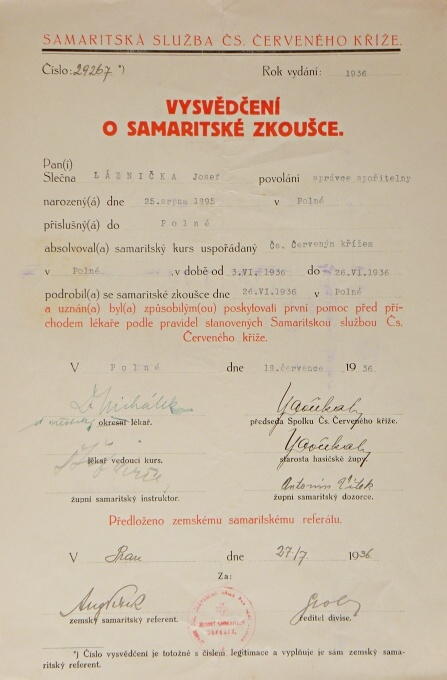 SAMARITSKÁ SLUŽBA ČS. ČERVENÉHO KŘÍŽE.
Číslo: 29267 *) Rok vydání: 1936
VYSVĚDČENÍ
O SAMARITSKÉ ZKOUŠCE.
Pan(í)
Slečna LÁZNIČKA Josef povolání správce spořitelny
narozený(á) dne 25.srpna 1895 v Polné
příslušný(á) do Polné
absolvoval(a) samaritský kurs uspořádaný Čs. Červeným křížem
v Polné v době od 3.VI.1936 do 26.VI.1936
podrobil(a) se samaritské zkoušce dne 26.VI.1936 v Polné
a uznán(a) byl(a) způsobilým(ou) poskytovati první pomoc před pří-
chodem lékaře podle pravidel stanovených Samaritskou službou Čs.
Červeného kříže.
V Polné dne 18.července 1936.
Dr Michálek
okresní lékař. předseda Spolku Čs. Červeného kříže.
lékař vedoucí kurs. starosta hasičské župy
Antonín Vítek
župní samaritský instruktor. župní samaritský dozorce.
Předloženo zemskému samaritskému referátu.
V dne 27/7 1936
Za:
zemský samaritský referent. ředitel divise.
*) Číslo vysvědčení je totožné s číslem legitimace a vyplňuje je sám zemský sama-
ritský referent.